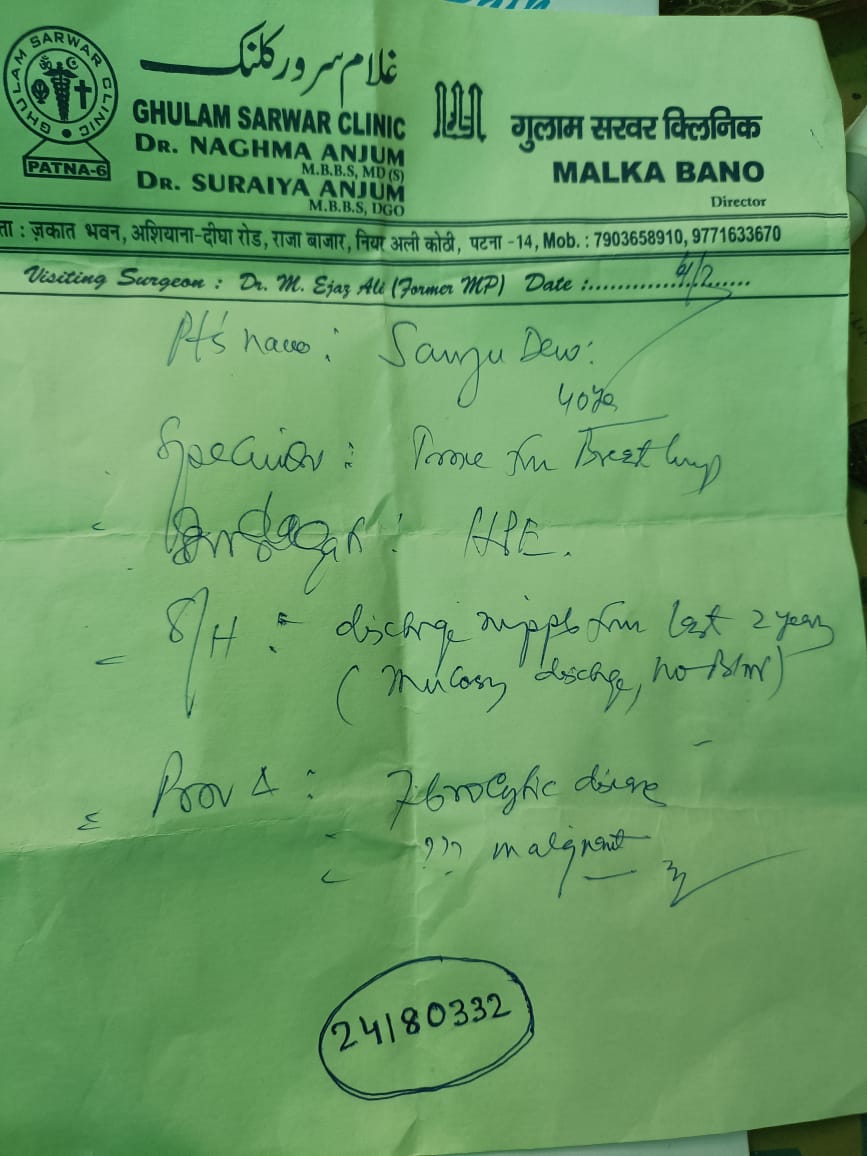 GHULAM SARWAR CLINIC
PATNA-6
غلام سرور کلنک
GHULAM SARWAR CLINIC
DR. NAGHMA ANJUM
M.B.B.S, MD (S)
DR. SURAIYA ANJUM
M.B.B.S, DGO
गुलाम सरवर क्लिनिक
MALKA BANO
Director
ता : ज़कात भवन, अशियाना-दीघा रोड, राजा बाजार, नियर अली कोठी, पटना -14, Mob. : 7903658910, 9771633670
Visiting Surgeon : Dr. M. Ejaz Ali (Former MP) Date :
Pt's name : Sanju Devi
40 yrs
Specimen : Tissue from Breast lump
: HPE.
S/H : discharge nipple from last 2 years
(Mucosy discharge, no Blood)
Prov Δ : Fibrocystic disease
??? malignant
24180332